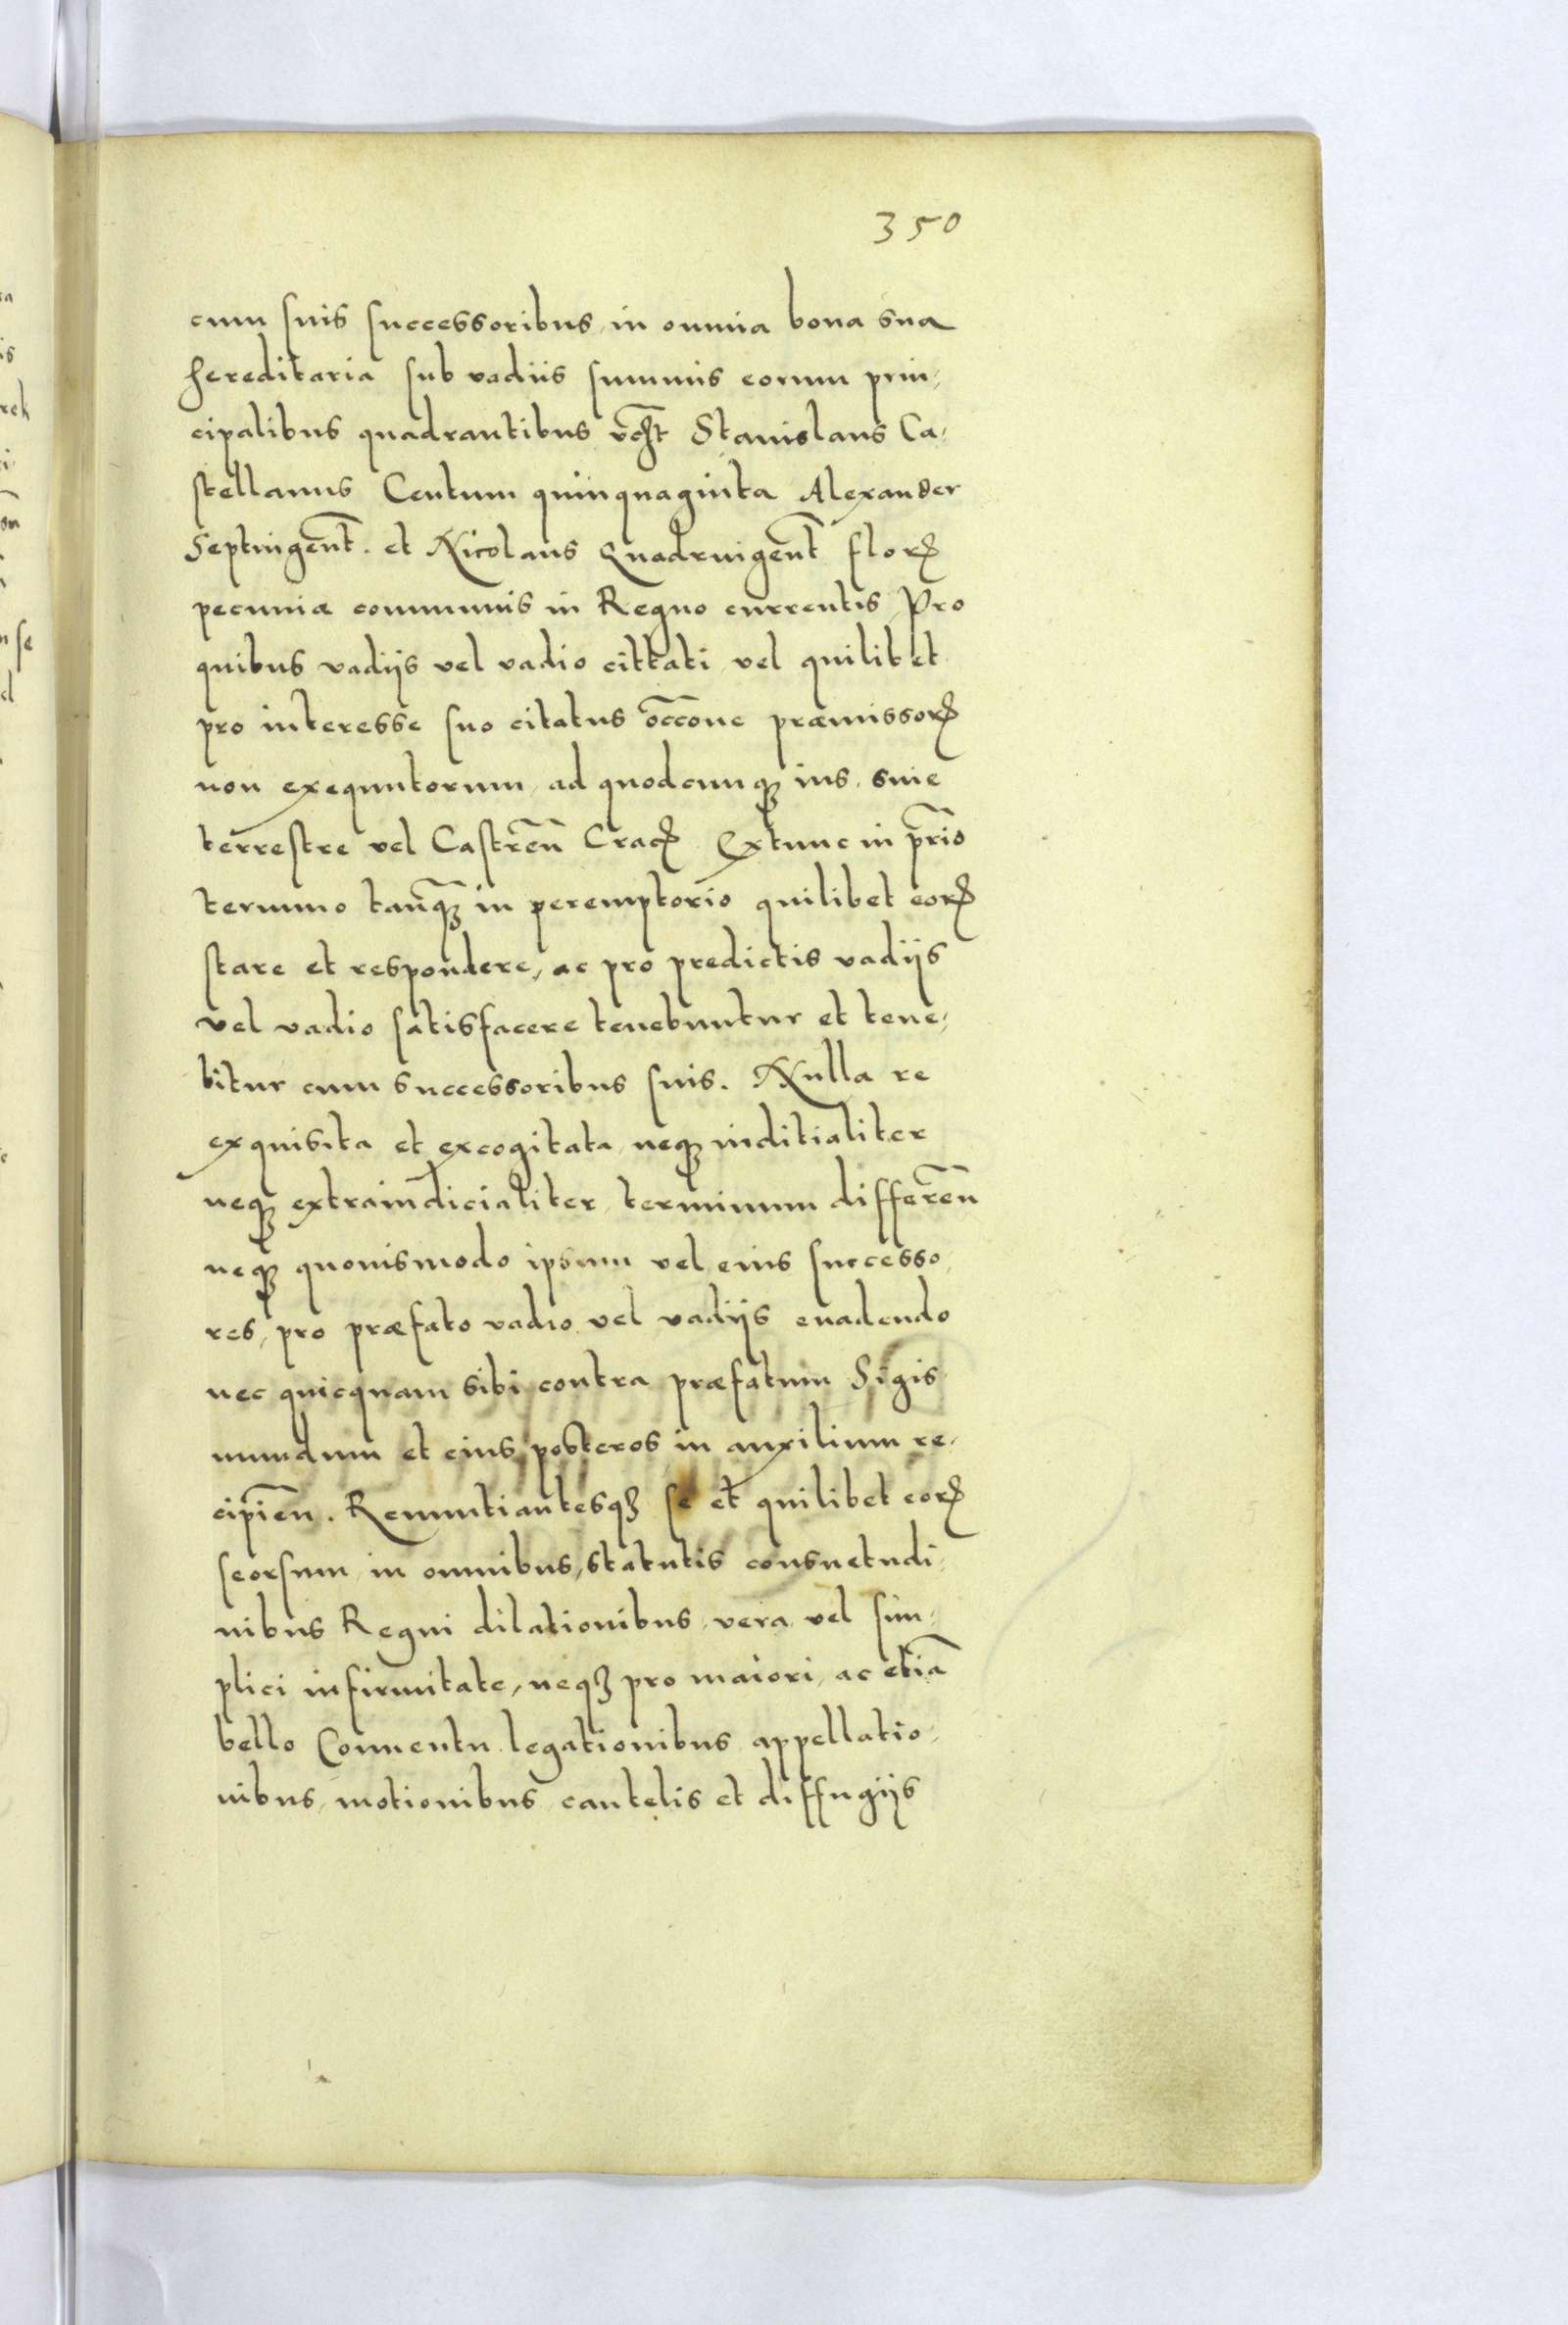 350
cum suis successoribus, in omnia bona sua
hereditaria sub vadiis summis eorum prin,
cipalibus quadrantibus vcꝫt Stanislaus Ca,
stellanus Centum quinquaginta Alexander
Septingent̄. et Nicolaus Quadringent̄ florꝭ
pecuniæ communis in Regno currentis, Pro
quibus vadijs vel vadio cittati, vel quilibet
pro interesse suo citatus occ̄one præmissorꝭ
non exequutorum, ad quodcunqꝫ ius, siue
terrestre vel Castren̄ Cracꝭ Extunc in p̄rio
termino tanqꝫ in peremptorio quilibet eorꝭ
stare et respondere, ac pro predictis vadijs
vel vadio satisfacere tenebuntur et tene,
bitur cum successoribus suis. Nulla re
exquisita et excogitata, neqꝫ iuditialiter
neqꝫ extraiudicialiter, terminum differen̄
neqꝫ quouismodo ipsum vel eius successo,
res, pro præfato vadio vel vadijs euadendo
nec quicquam sibi contra præfatum Sigis,
mundum et eius posteros in auxilium re,
cipien̄. Renuntiantesqꝫ se et quilibet eorꝭ
seorsum, in omnibus, statutis consuetudi,
nibus Regni dilationibus, vera vel sim,
plici infirmitate, neqꝫ pro maiori, ac etiā
bello Conuentu legationibus appellatio,
nibus, motionibus, cautelis et diffugijs